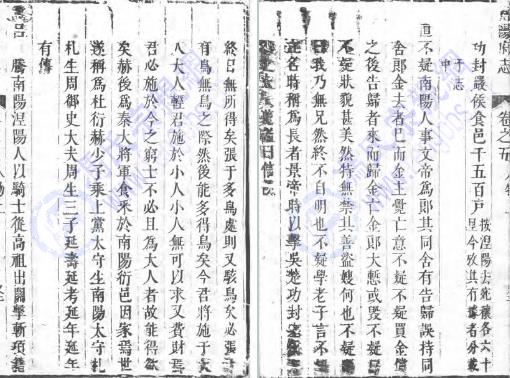 卷之五
功封嚴侯食邑千五百戶 按涅陽去穰各六十
里今攷其有據者分載
于志
中
直不疑南陽人事文帝為郎其同舍有告歸誤持同
舍郎金去者已而金主覺亡意不疑不疑買金償
之後告歸者來而歸金亡金郎大慙或毀不疑曰
不疑狀貌甚美然特無禁其善盜嫂何也不疑聞
曰我乃無兄然終不自明也不疑學老子言不
立名時稱為長者景帝時以擊吳楚功封
終日無所得矣張于多鳥處則又駭鳥矣必張于
有鳥無鳥之際然後能多得鳥矣今君將施于大
人大人輕君施於小人小人無可以求又費財焉
君必施於今之窮士不必且為大人者故能得欲
矣赫後為秦大將軍食釆於南陽衍邑因家焉世
遂稱為杜衍赫少子秉上黨太守生南陽太守札
札生周御史大夫周生三子延壽延考延年延年
有傳
呂騰南陽涅陽人以騎士從高祖出關擊斬項籍